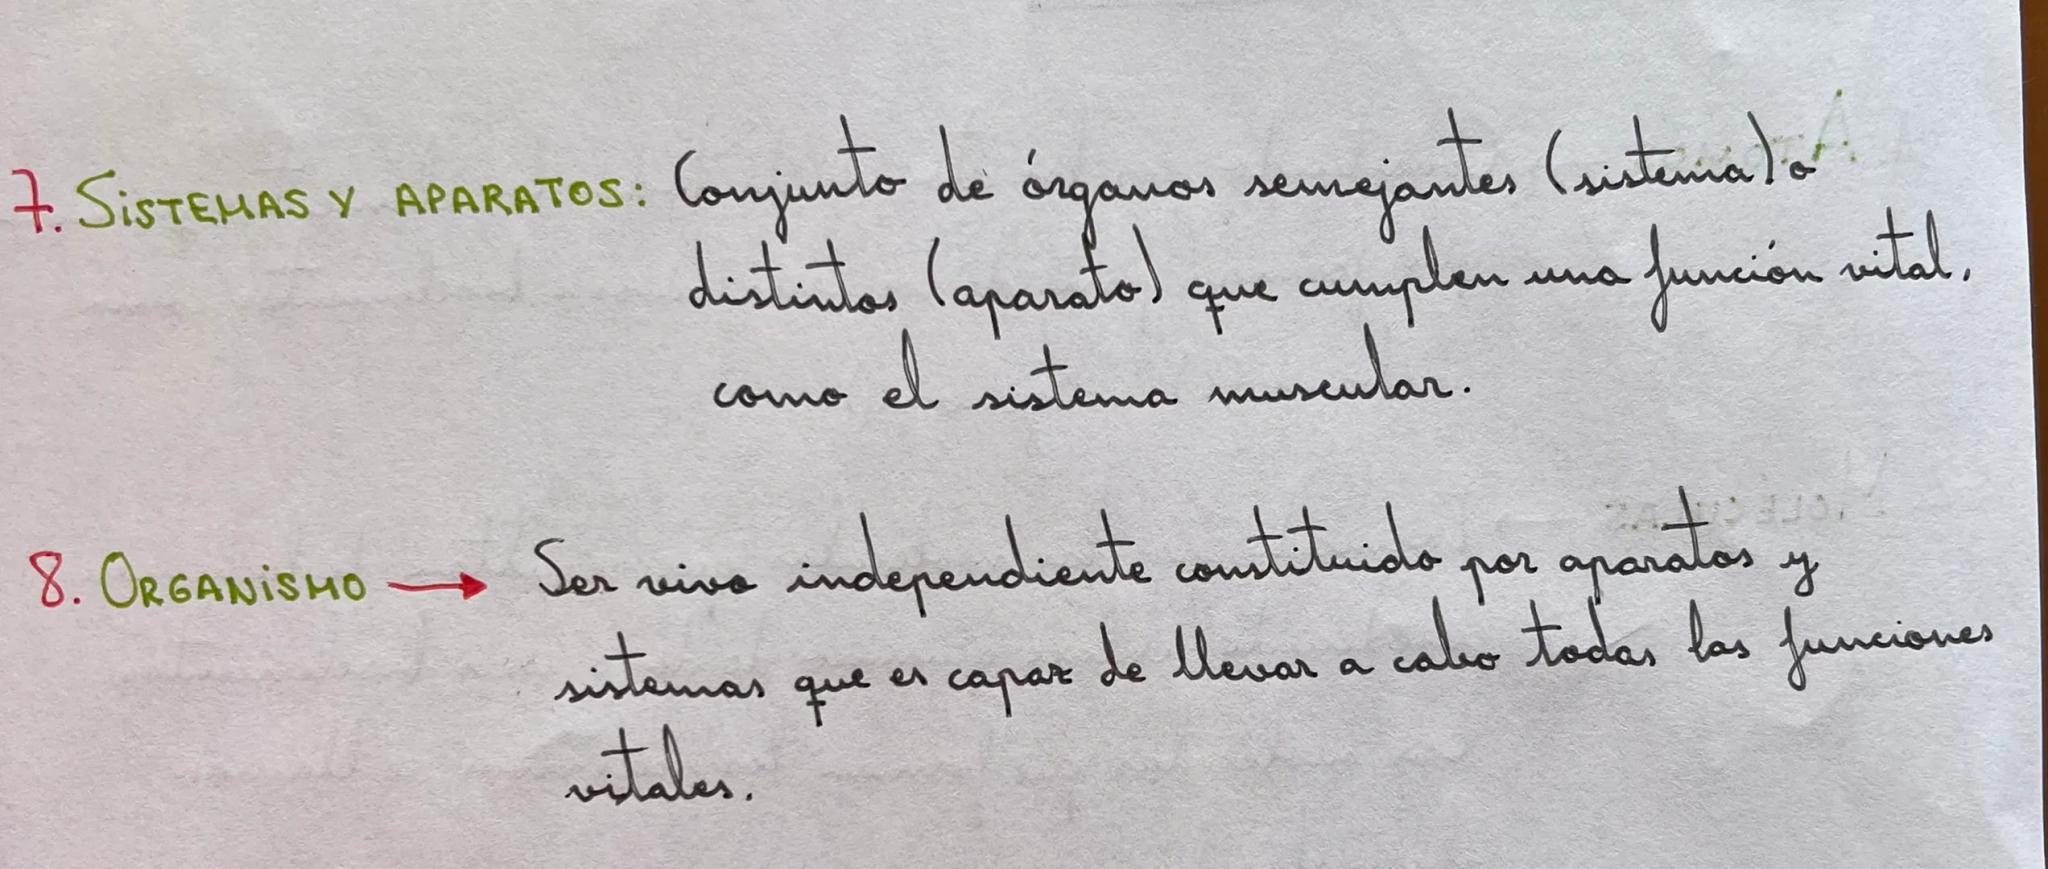 7. SISTEMAS Y APARATOS: Conjunto de órganos semejantes (sistema) o
distintos (aparato) que cumplen una función vital,
como el sistema muscular.
8. ORGANISMO → Ser vivo independiente constituido por aparatos y
sistemas que es capaz de llevar a cabo todas las funciones
vitales.